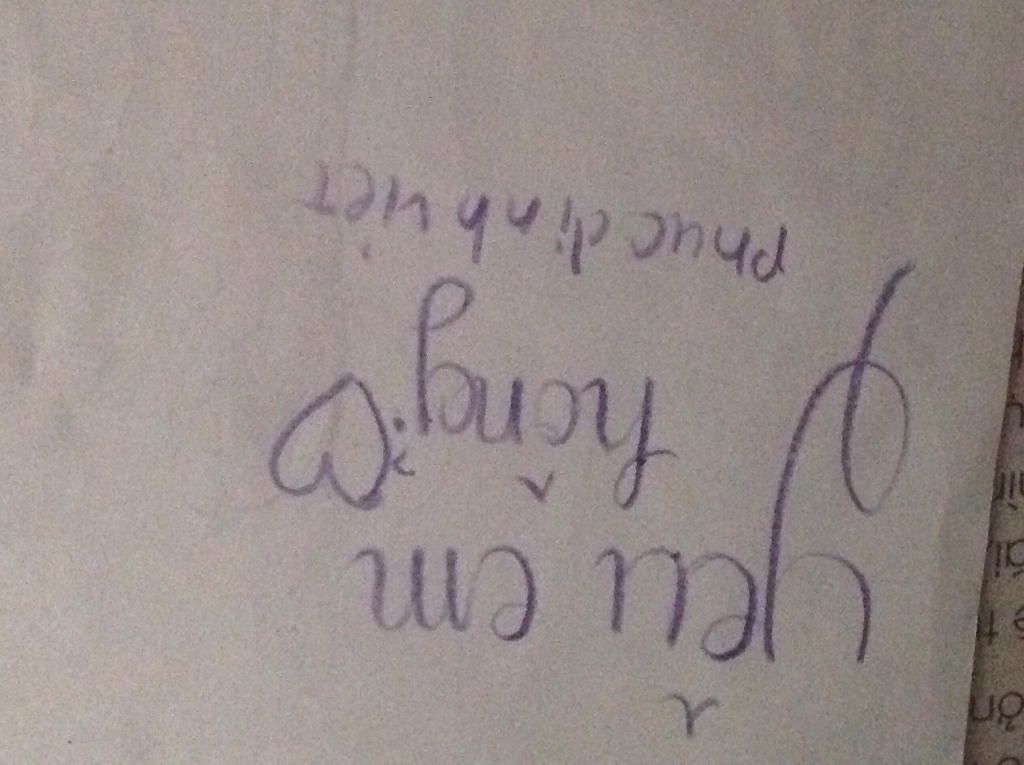 yêu em
hồng
phuc định việt